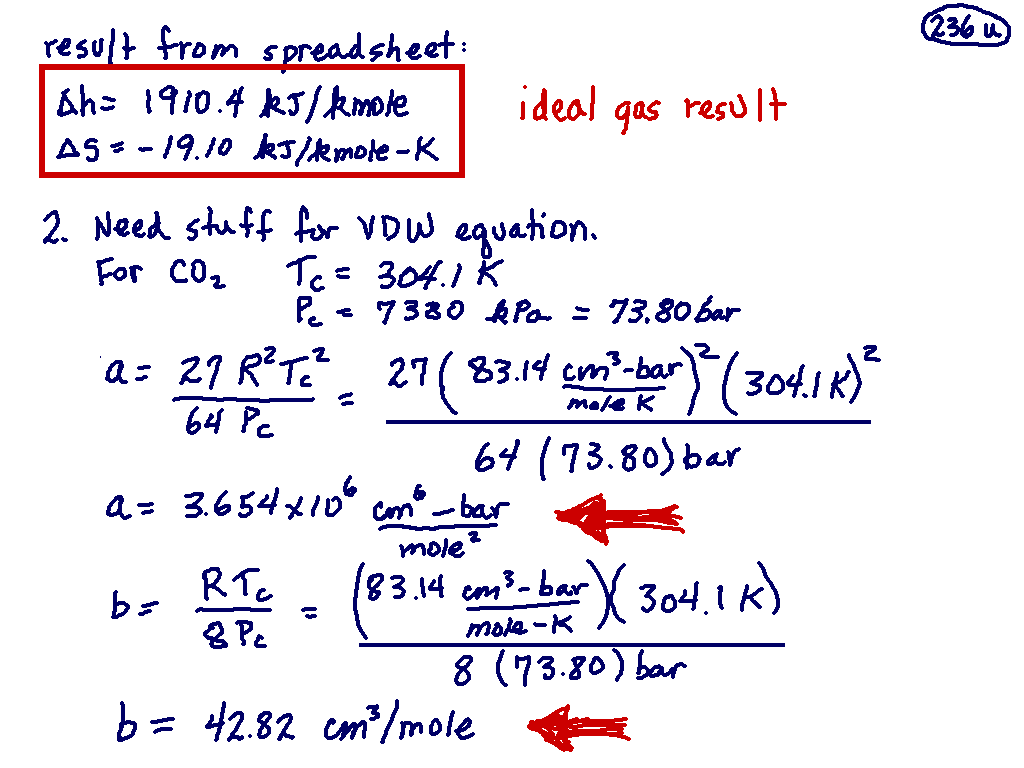 236 u
result from spreadsheet:
Δh = 1910.4 kJ/kmole
ΔS = -19.10 kJ/kmole-K
ideal gas result
2. Need stuff for VDW equation.
For CO₂ Tc = 304.1 K
Pc = 7380 kPa = 73.80 bar
a = 27 R² Tc² / 64 Pc = 27 (83.14 cm³-bar / mole K)² (304.1 K)² / 64 (73.80) bar
a = 3.654 x 10⁶ cm⁶-bar / mole²
b = R Tc / 8 Pc = (83.14 cm³-bar / mole-K)(304.1 K) / 8 (73.80) bar
b = 42.82 cm³/mole